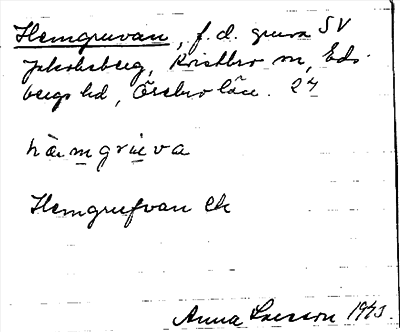 Hemgruvan, f.d. gruva SV
Jakobsberg, Kristbro sn, Eds-
bergs hd, Örebro län. 24
hàmgrùva
Hemgrufvan Ek
Anna Larsson 1973.